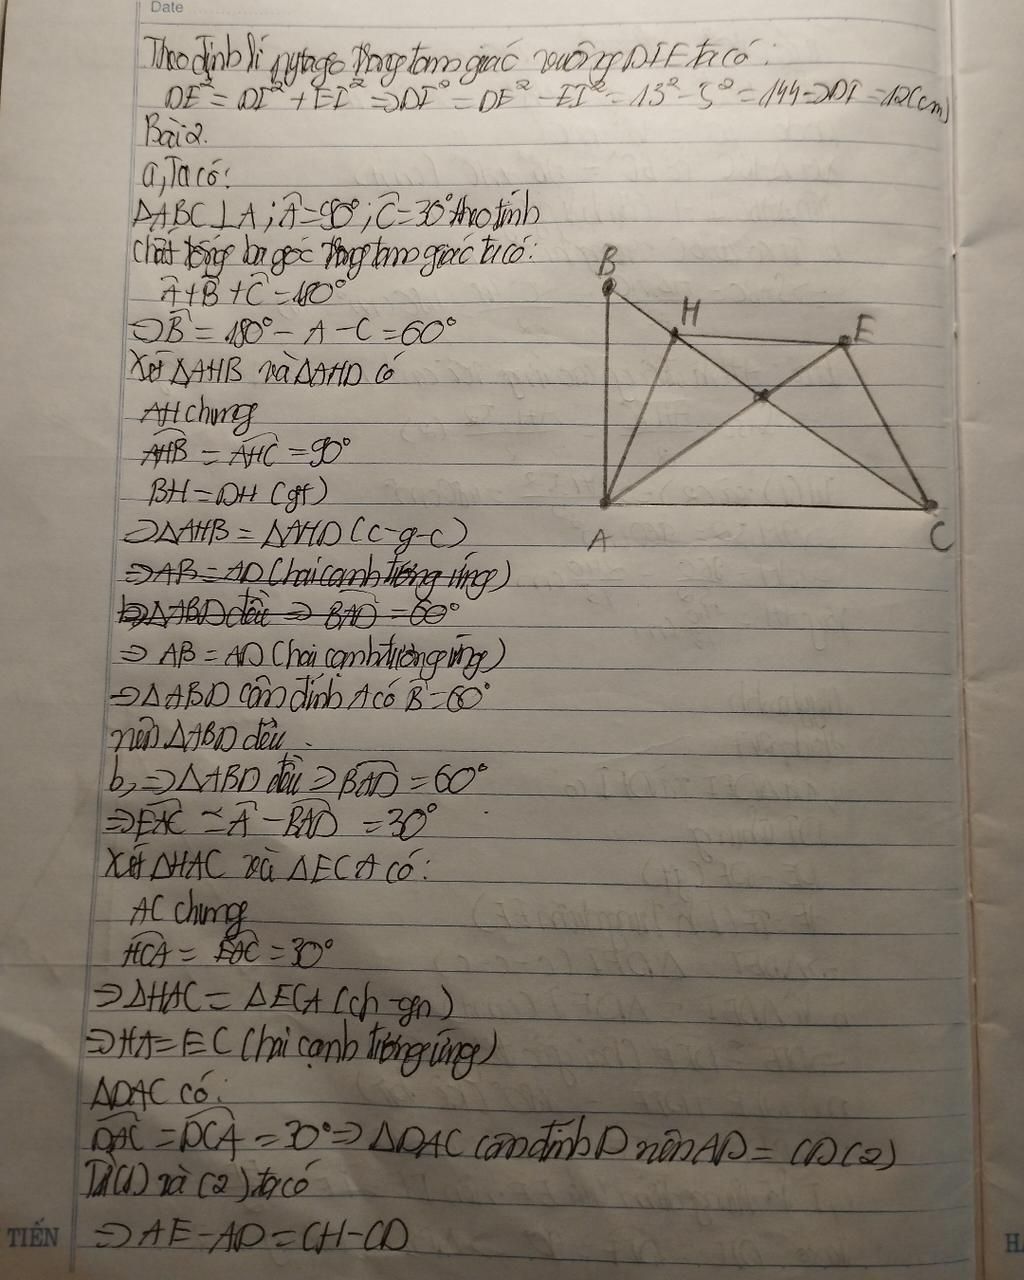 Date
Theo định lí pytago trong tam giác vuông DIE ta có:
DE² = DI² + EI² ⇒ DI² = DE² - EI² = 13² - 5² = 144 ⇒ DI = 12(cm)
Bài 2.
a, Ta có:
ΔABC ⊥ A; Â = 90°; Ĉ = 30° theo tính
chất tổng ba góc trong tam giác ta có:
Â + B̂ + Ĉ = 180°
⇒ B̂ = 180° - A - C = 60°
Xét ΔAHB và ΔAHD có
AH chung
AHB = AHC = 90°
BH = DH (gt)
⇒ ΔAHB = ΔAHD (c-g-c)
⇒ AB = AD (hai cạnh tương ứng)
b ⇒ ΔABD đều ⇒ BAD = 60°
⇒ AB = AD (hai cạnh tương ứng)
⇒ ΔABD cân đỉnh A có B̂ = 60°
nên ΔABD đều.
b, ⇒ ΔABD đều ⇒ BAD = 60°
⇒ EAC = Â - BAD = 30°
Xét ΔHAC và ΔECA có:
AC chung
HCA = EAC = 30°
⇒ ΔHAC = ΔECA (ch-gn)
⇒ HA = EC (hai cạnh tương ứng)
ΔDAC có:
DAC = DCA = 30° ⇒ ΔDAC cân đỉnh D nên AD = CD (2)
Từ (1) và (2) ta có
⇒ AE - AD = CH - CD
B
H
E
A
C
TIẾN
HẢ